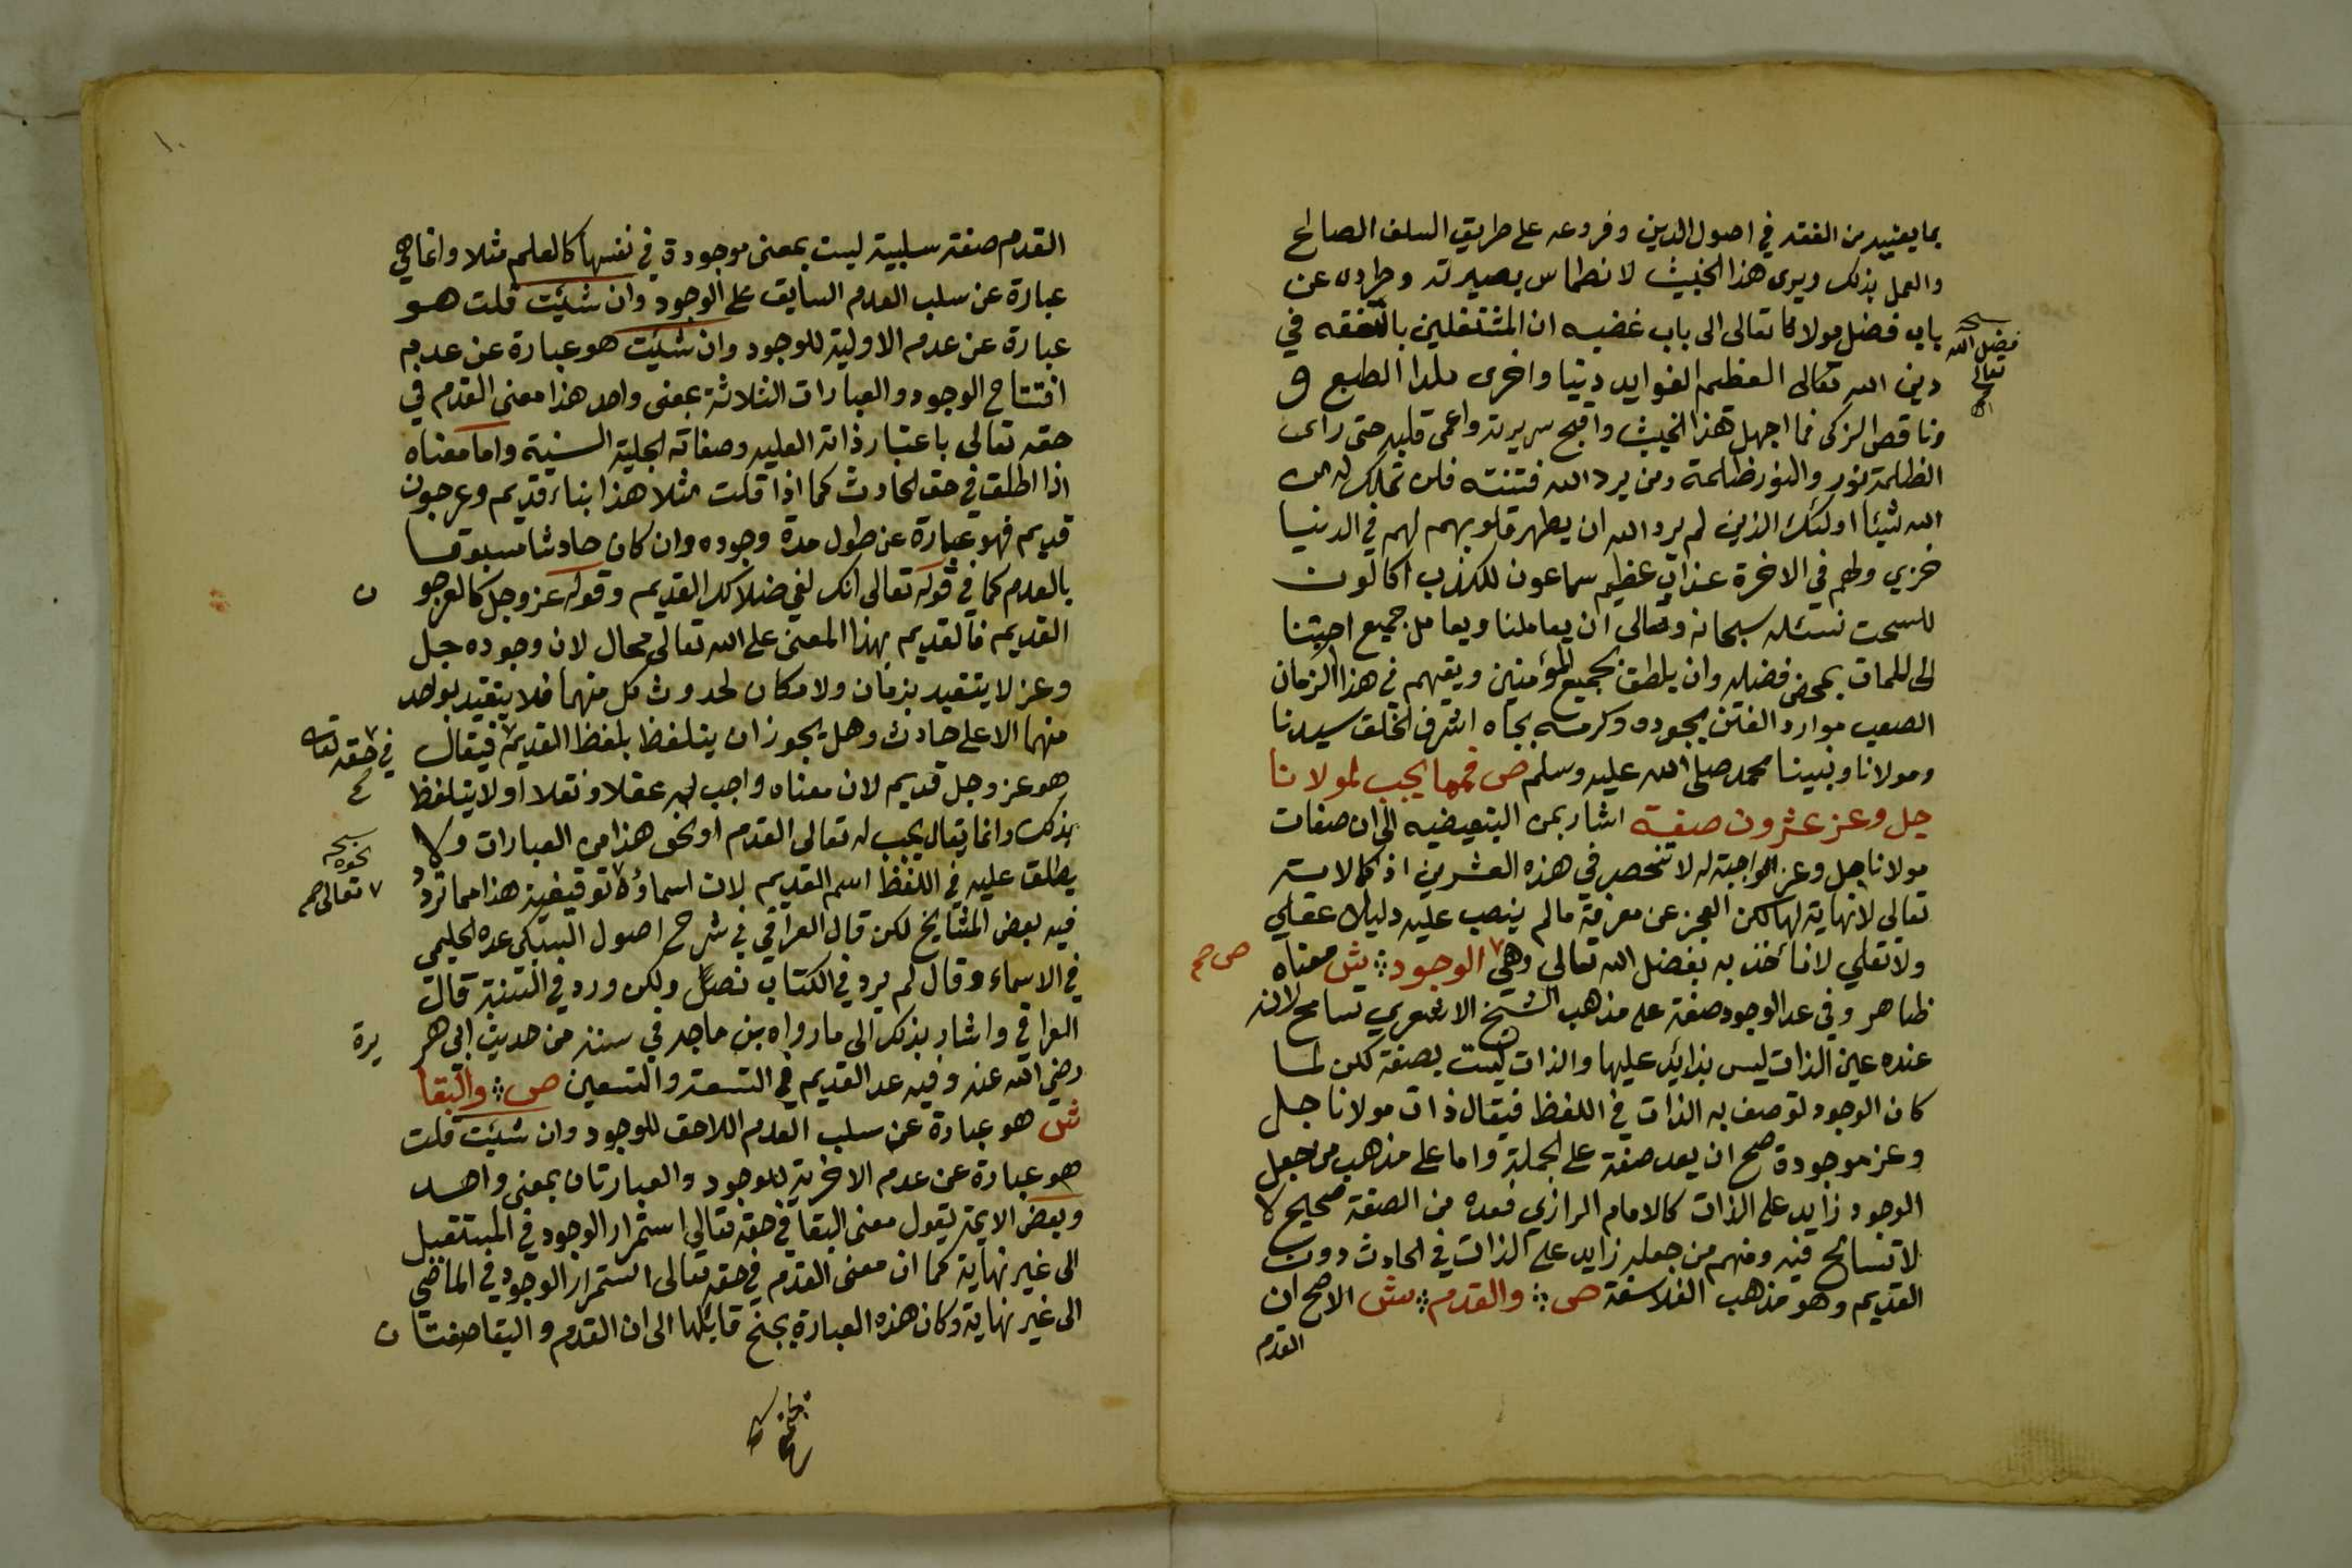 بما يعنيه من الفقه في اصول الدين وفروعه على طريق السلف الصالح
والعمل بذلك ويرى هذا الخبيث لانطماس بصيرته وطرده عن
باب فضل مولانا تعالى الى باب غضبه ان المشتغلين بالتفقه في
فضل الله
تعالى
دين الله تعالى العظيم الفوايد دنيا واخرى بلدا الطبع و
وناقصي الزكي فما اجهل هذا الخبيث واقبح سريرته واعمى قلبه حتى راى
الظلمة نور والنور ظلمة ومن يرد الله فتنته فلن تملك له من
الله شيئا اولئك الذين لم يرد الله ان يطهر قلوبهم لهم في الدنيا
خزي ولهم في الاخرة عذاب عظيم سماعون للكذب اكالون
للسحت نسئله سبحانه وتعالى ان يعاملنا ويعامل جميع احبتنا
الى الممات بمحض فضله وان يلطف بجميع المؤمنين ويقيهم في هذا الزمان
الصعب موارد الفتن بجوده وكرمه بجاه اشرف الخلق سيدنا
ومولانا ونبينا محمد صلى الله عليه وسلم ص فمما يجب لمولانا
جل وعز عشرون صفة اشار بمن التبعيضيه الى ان صفات
مولانا جل وعز الواجبة له لا تنحصر في هذه العشرين اذ كمالاته
تعالى لا نهاية لها لكن العجز عن معرفة ما لم ينصب عليه دليل عقلي
ولا نقلي لا نأخذ به بفضل الله تعالى وهي الوجود ش معناه
ص صح
ظاهر وفي عد الوجود صفة على مذهب الشيخ الاشعري تسامح لانه
عنده عين الذات ليس بزائد عليها والذات ليست بصفة لكن لما
كان الوجود توصف به الذات في اللفظ فيقال ذات مولانا جل
وعز موجودة صح ان يعد صفة على الجملة واما على مذهب من جعل
الوجود زايد على الذات كالامام الرازي فعده من الصفة صحيح لا
لا تسامح فيه ومنهم من جعله زايد على الذات في الحادث دون
القديم وهو مذهب الفلاسفة ص والقدم ش الاصح ان
القدم
١٠
القدم صفة سلبية ليست بمعنى موجودة في نفسها كالعلم مثلا وانما هي
عبارة عن سلب العدم السابق على الوجود وان شئت قلت هو
عبارة عن عدم الاولية للوجود وان شئت هو عبارة عن عدم
افتتاح الوجود والعبارات الثلاثة بمعنى واحد هذا معنى القدم في
حقه تعالى باعتبار ذاته العليه وصفاته الجلية السنية واما معناه
اذا اطلق في حق الحادث كما اذا قلت مثلا هذا بناء قديم وعرجون
قديم فهو عبارة عن طول مدة وجوده وان كان حادثا مسبوقا
بالعدم كما في قوله تعالى انك لفي ضلالك القديم وقوله عز وجل كالعرجو ن
القديم فالقديم بهذا المعنى على الله تعالى محال لان وجوده جل
وعز لا يتقيد بزمان ولا مكان لحدوث كل منهما فلا يتقيد بواحد
منهما الا على حادث وهل يجوز ان يتلفظ بلفظ القديم فيقال
في حقه تعالى
هو عز وجل قديم لان معناه واجب له عقلا ونقلا او لا يتلفظ
بذلك وانما يقال يجب له تعالى القدم او نحو هذا من العبارات ولا
نحوه
يطلق عليه في اللفظ اسم القديم لان اسماؤه توقيفية هذا مما تردد
تعالى صح
فيه بعض المشايخ لكن قال العراقي في شرح اصول السبكي عده الحليمي
في الاسماء وقال لم يرد في الكتاب نصا ولكن ورد في السنة قال
العراقي واشار بذلك الى ما رواه بن ماجه في سننه من حديث ابي هر يرة
رضي الله عنه وفيه عد القديم في التسعة والتسعين ص والبقا
ش هو عبارة عن سلب العدم اللاحق للوجود وان شئت قلت
هو عبارة عن عدم الاخرية للوجود والعبارتان بمعنى واحد
وبعض الايمة يقول معنى البقا في حقه تعالى استمرار الوجود في المستقبل
الى غير نهاية كما ان معنى القدم في حقه تعالى استمرار الوجود في الماضي
الى غير نهاية وكان هذه العبارة يجنح قايلها الى ان القدم والبقا صفتان